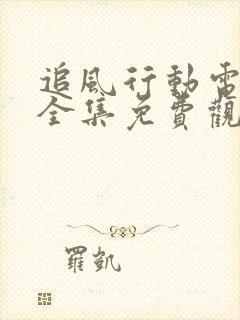 追風行動電
全集免費觀
羅凱